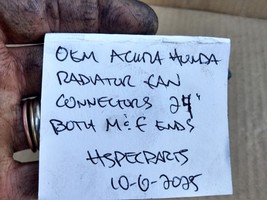 OEM ACURA HONDA
RADIATOR FAN
CONNECTORS 24"
BOTH M & F ENDS
HSPECPARTS
10-6-2025